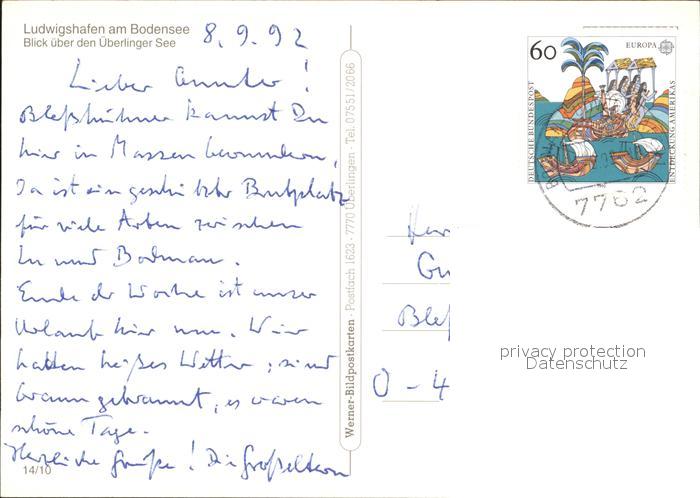 Ludwigshafen am Bodensee
Blick über den Überlinger See
8.9.92
Lieber !
Bleßhühner kannst Du
hier in Massen bewundern,
Da ist ein geschützter Brutplatz
für viele Arten zwischen
Lu und Bodman.
Ende der Woche ist unser
Urlaub hier um. Wir
hatten heißes Wetter; sind
braun gebrannt, es waren
schöne Tage.
Herzliche Grüße! Die Großeltern
14/10
Werner-Bildpostkarten · Postfach 1623 · 7770 Überlingen · Tel. 07551/2066
60
EUROPA
DEUTSCHE BUNDESPOST
ENTDECKUNG AMERIKAS
7762
Her
Gu
Bleß
O - 4
privacy protection
Datenschutz